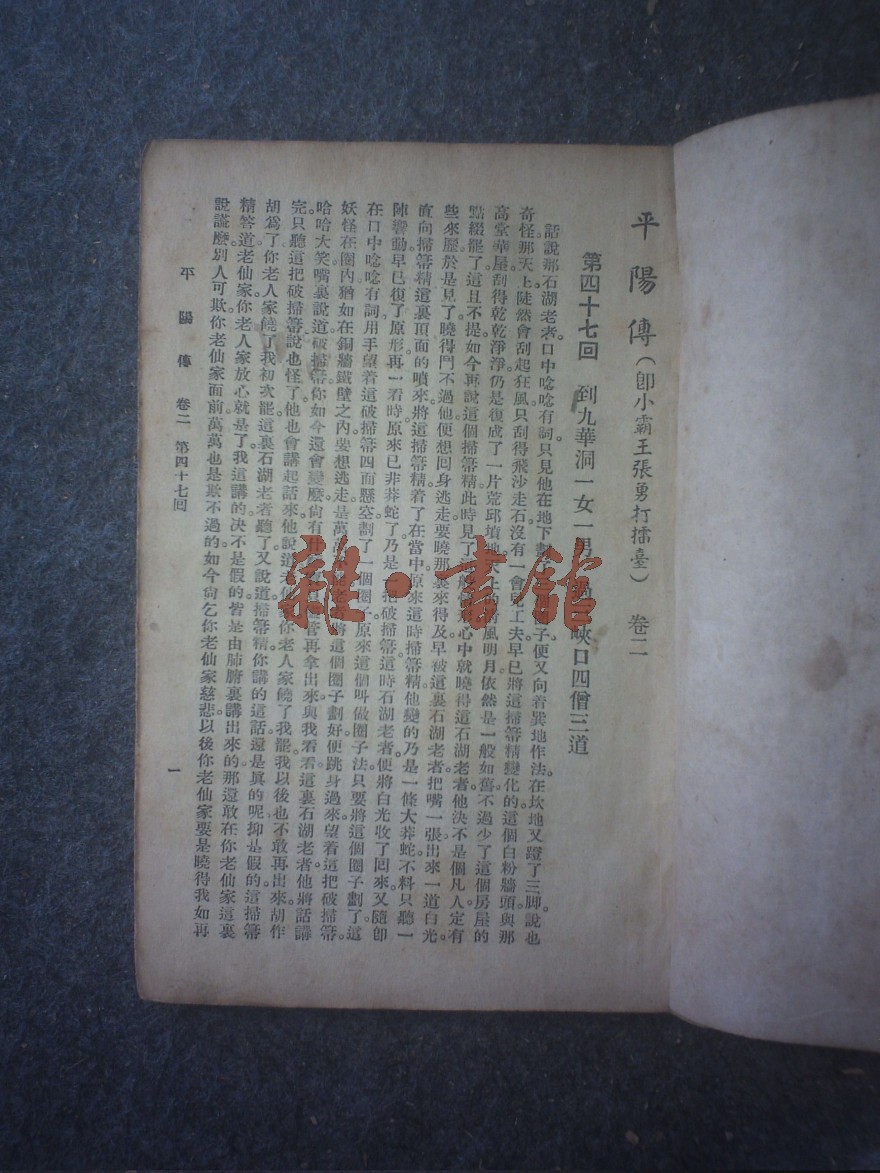 平陽傳（卽小霸王張勇打擂臺） 卷二
第四十七回 到九華洞一女一男 峽口四僧三道
話說那石湖老者口中唸唸有詞。只見他在地下劃 子。便又向着巽地作法。在坎地又蹬了三脚。說也
奇怪。那天上陡然會刮起狂風。只刮得飛沙走石。沒有一會兒工夫。早已將這掃箒精變化的這個白粉牆頭。與那
高堂華屋。刮得乾乾淨淨。仍是復成了一片荒邱墳地。天上 淸風明月。依然是一般如舊。不過少了這個房屋的
點綴罷了。這且不提。如今再說這個掃箒精。此時見了 般情形。心中就曉得這石湖老者。他決不是個凡人。定有
些來歷。於是見了。曉得鬥不過他。便想回身逃走。要曉那裏來得及。早被這裏石湖老者。把嘴一張。出來一道白光。
直向掃箒精這裏頂面的噴來。將這掃箒精着了在當中。原來這時掃箒精他變的乃是一條大莽蛇。不料只聽一
陣響動。早已復了原形。再一看時。原來已非莽蛇了。乃是一把破掃箒。這時石湖老者。便將白光收了回來。又隨卽
在口中唸唸有詞。用手望着這破掃箒四面懸空劃了一個圈子。原來這個叫做圈子法。只要將這個圈子劃了。這
妖怪在圈內。猶如在銅牆鐵壁之內。要想逃走。是萬 將這個圈子劃好。便跳身過來。望着這把破掃箒。
哈哈大笑。嘴裏說道。破掃箒。你如今還會變麼。尙有什 管再拿出來與我看看。這裏石湖老者他將話講
完。只聽這把破掃箒。說也怪了。他也會講起話來。他說道。老仙 你老人家饒了我罷。我以後也不敢再出來胡作
胡爲了。你老人家饒了我初次罷。這裏石湖老者聽了。又說道。掃箒精。你講的這話。還是眞的呢。抑是假的。這掃箒
精答道。老仙家。你老人家放心就是了。我這講的決不是假的。皆是由肺腑裏講出來的。那還敢在你老仙家這裏
說謊麼。別人可欺。你老仙家面前。萬萬也是欺不過的。如今尙乞你老仙家慈悲。以後你老仙家要是曉得我如再
平陽傳 卷二 第四十七回 一
雜·書館